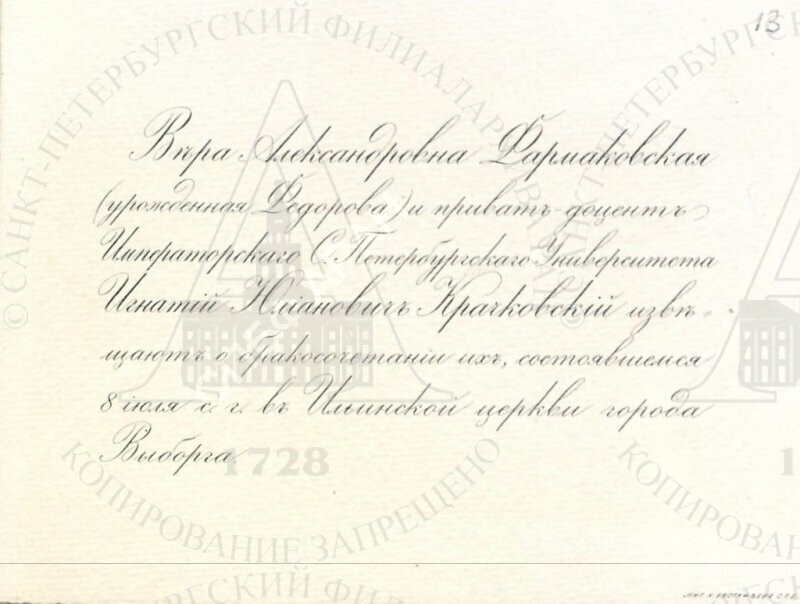 13
Вѣра Александровна Фармаковская
(урожденная Федорова) и приватъ-доцентъ
Императорскаго С. Петербургскаго Университета
Игнатій Юліановичъ Крачковскій извѣ-
щаютъ о бракосочетаніи ихъ, состоявшемся
8 іюля с. г. въ Ильинской церкви города
Выборга.
© САНКТ-ПЕТЕРБУРГСКИЙ ФИЛИАЛ АРХИВА РАН
1728
КОПИРОВАНИЕ ЗАПРЕЩЕНО